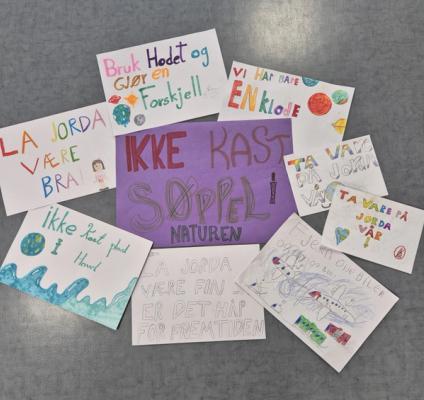 Bruk Hodet og
Gjør en
Forskjell
VI HAR BARE
EN klode
LA JORDA
VÆRE
BRA!
IKKE KAST
SØPPEL
I
NATUREN
TA VARE
PÅ JORDA
VÅR
TA VARE PÅ
JORDA
VÅR!
ikke Kast plast
I
Havet
LA JORDA
VÆRE FIN SÅ
ER DET HÅP
FOR FREMTIDEN
Fjern
BILER